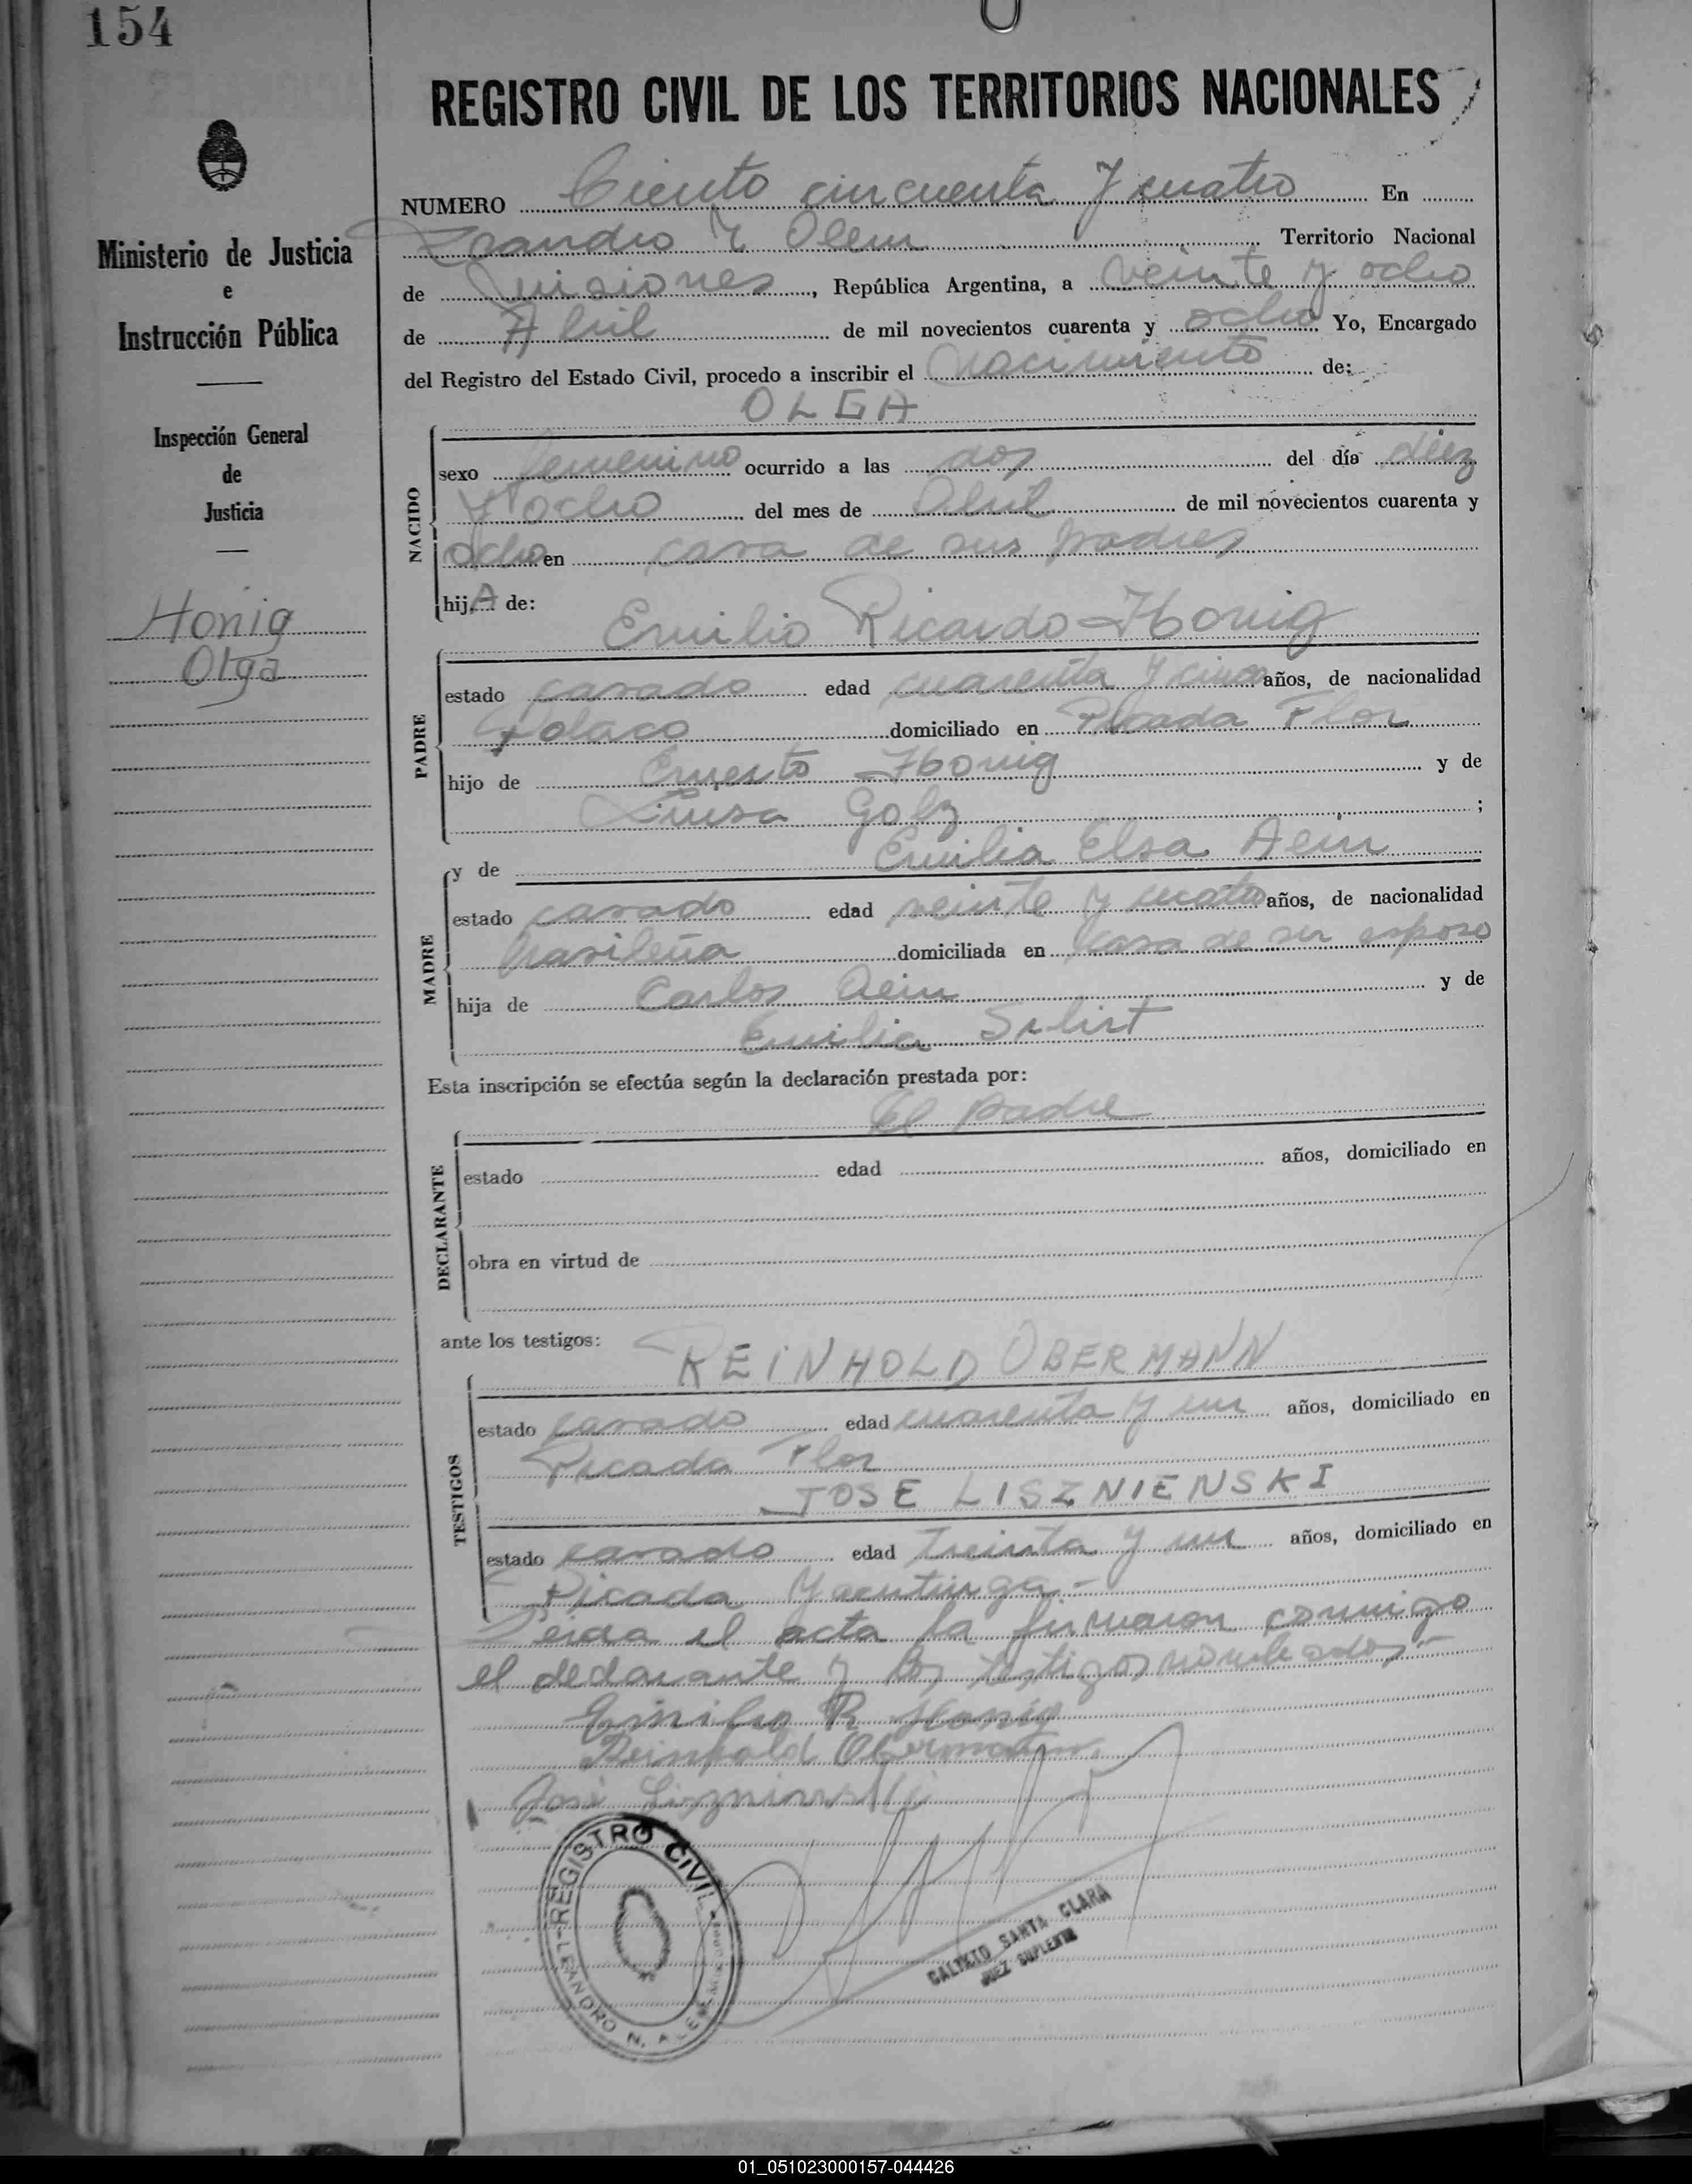 154
REGISTRO CIVIL DE LOS TERRITORIOS NACIONALES
Ministerio de Justicia
e
Instrucción Pública
Inspección General
de
Justicia
Honig
Olga
NUMERO Ciento cincuenta y cuatro En
Leandro N Alem Territorio Nacional
de Misiones, República Argentina, a veinte y ocho
de Abril de mil novecientos cuarenta y ocho Yo, Encargado
del Registro del Estado Civil, procedo a inscribir el nacimiento de:
OLGA
NACIDO
sexo femenino ocurrido a las dos del día diez
y ocho del mes de Abril de mil novecientos cuarenta y
ocho en casa de sus padres
hija de:
Emilio Ricardo Honig
PADRE
estado casado edad cuarenta y cinco años, de nacionalidad
Polaco domiciliado en Picada Flor
hijo de Ernesto Honig y de
Luisa Golz ;
y de Emilia Elsa
MADRE
estado casado edad veinte y cuatro años, de nacionalidad
brasileña domiciliada en casa de su esposo
hija de Carlos y de
Emilia
Esta inscripción se efectúa según la declaración prestada por:
El padre
DECLARANTE
estado edad años, domiciliado en
obra en virtud de
ante los testigos:
REINHOLD OBERMANN
TESTIGOS
estado casado edad cuarenta y un años, domiciliado en
Picada Flor
JOSE LISZNIENSKI
estado casado edad treinta y un años, domiciliado en
Picada Yacutinga-
Leida el acta la firmaron conmigo
el declarante y los testigos nombrados.-
Emilio R Honig
Reinhold Obermann
José
REGISTRO CIVIL
LEANDRO N. ALEM
CALIXTO SANTA CLARA
JUEZ SUPLENTE
01_051023000157-044426